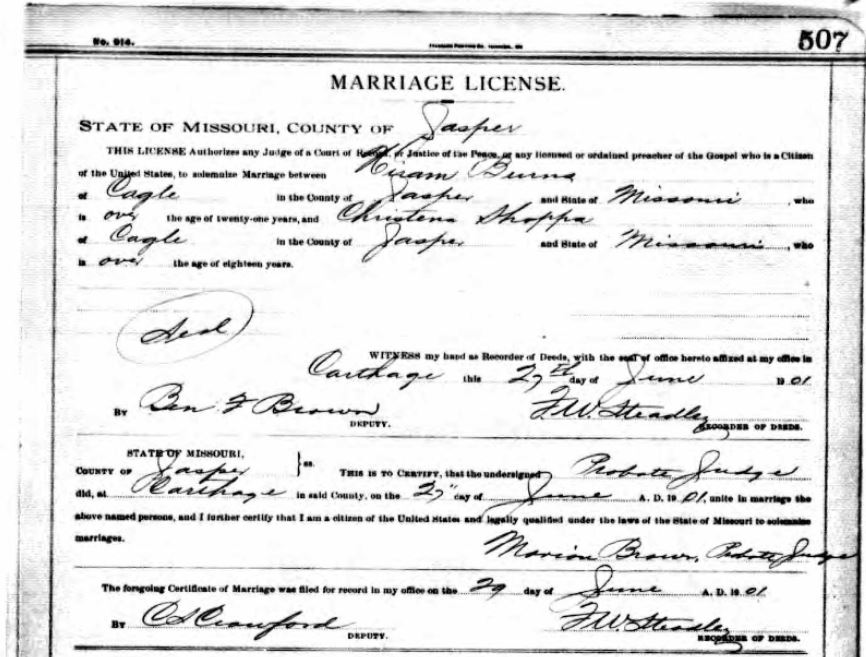 No. 914.
507
MARRIAGE LICENSE.
STATE OF MISSOURI, COUNTY OF Jasper
THIS LICENSE Authorizes any Judge of a Court of Record, or Justice of the Peace, or any licensed or ordained preacher of the Gospel who is a Citizen
of the United States, to solemnize Marriage between Hiram Burns
of Cagle in the County of Jasper and State of Missouri, who
is over the age of twenty-one years, and Christena Shoppa
of Cagle in the County of Jasper and State of Missouri, who
is over the age of eighteen years.
Seal
WITNESS my hand as Recorder of Deeds, with the seal of office hereto affixed at my office in
Carthage this 27th day of June 1901.
By Ben F Brown DEPUTY. F.W. Steadley RECORDER OF DEEDS.
STATE OF MISSOURI,
COUNTY OF Jasper } ss. THIS IS TO CERTIFY, that the undersigned Probate Judge
did, at Carthage in said County, on the 27" day of June A. D. 1901, unite in marriage the
above named persons, and I further certify that I am a citizen of the United States and legally qualified under the laws of the State of Missouri to solemnize
marriages.
Marion Brown, Probate Judge
The foregoing Certificate of Marriage was filed for record in my office on the 29 day of June A. D. 1901.
By C S Crawford DEPUTY. F.W. Steadley RECORDER OF DEEDS.